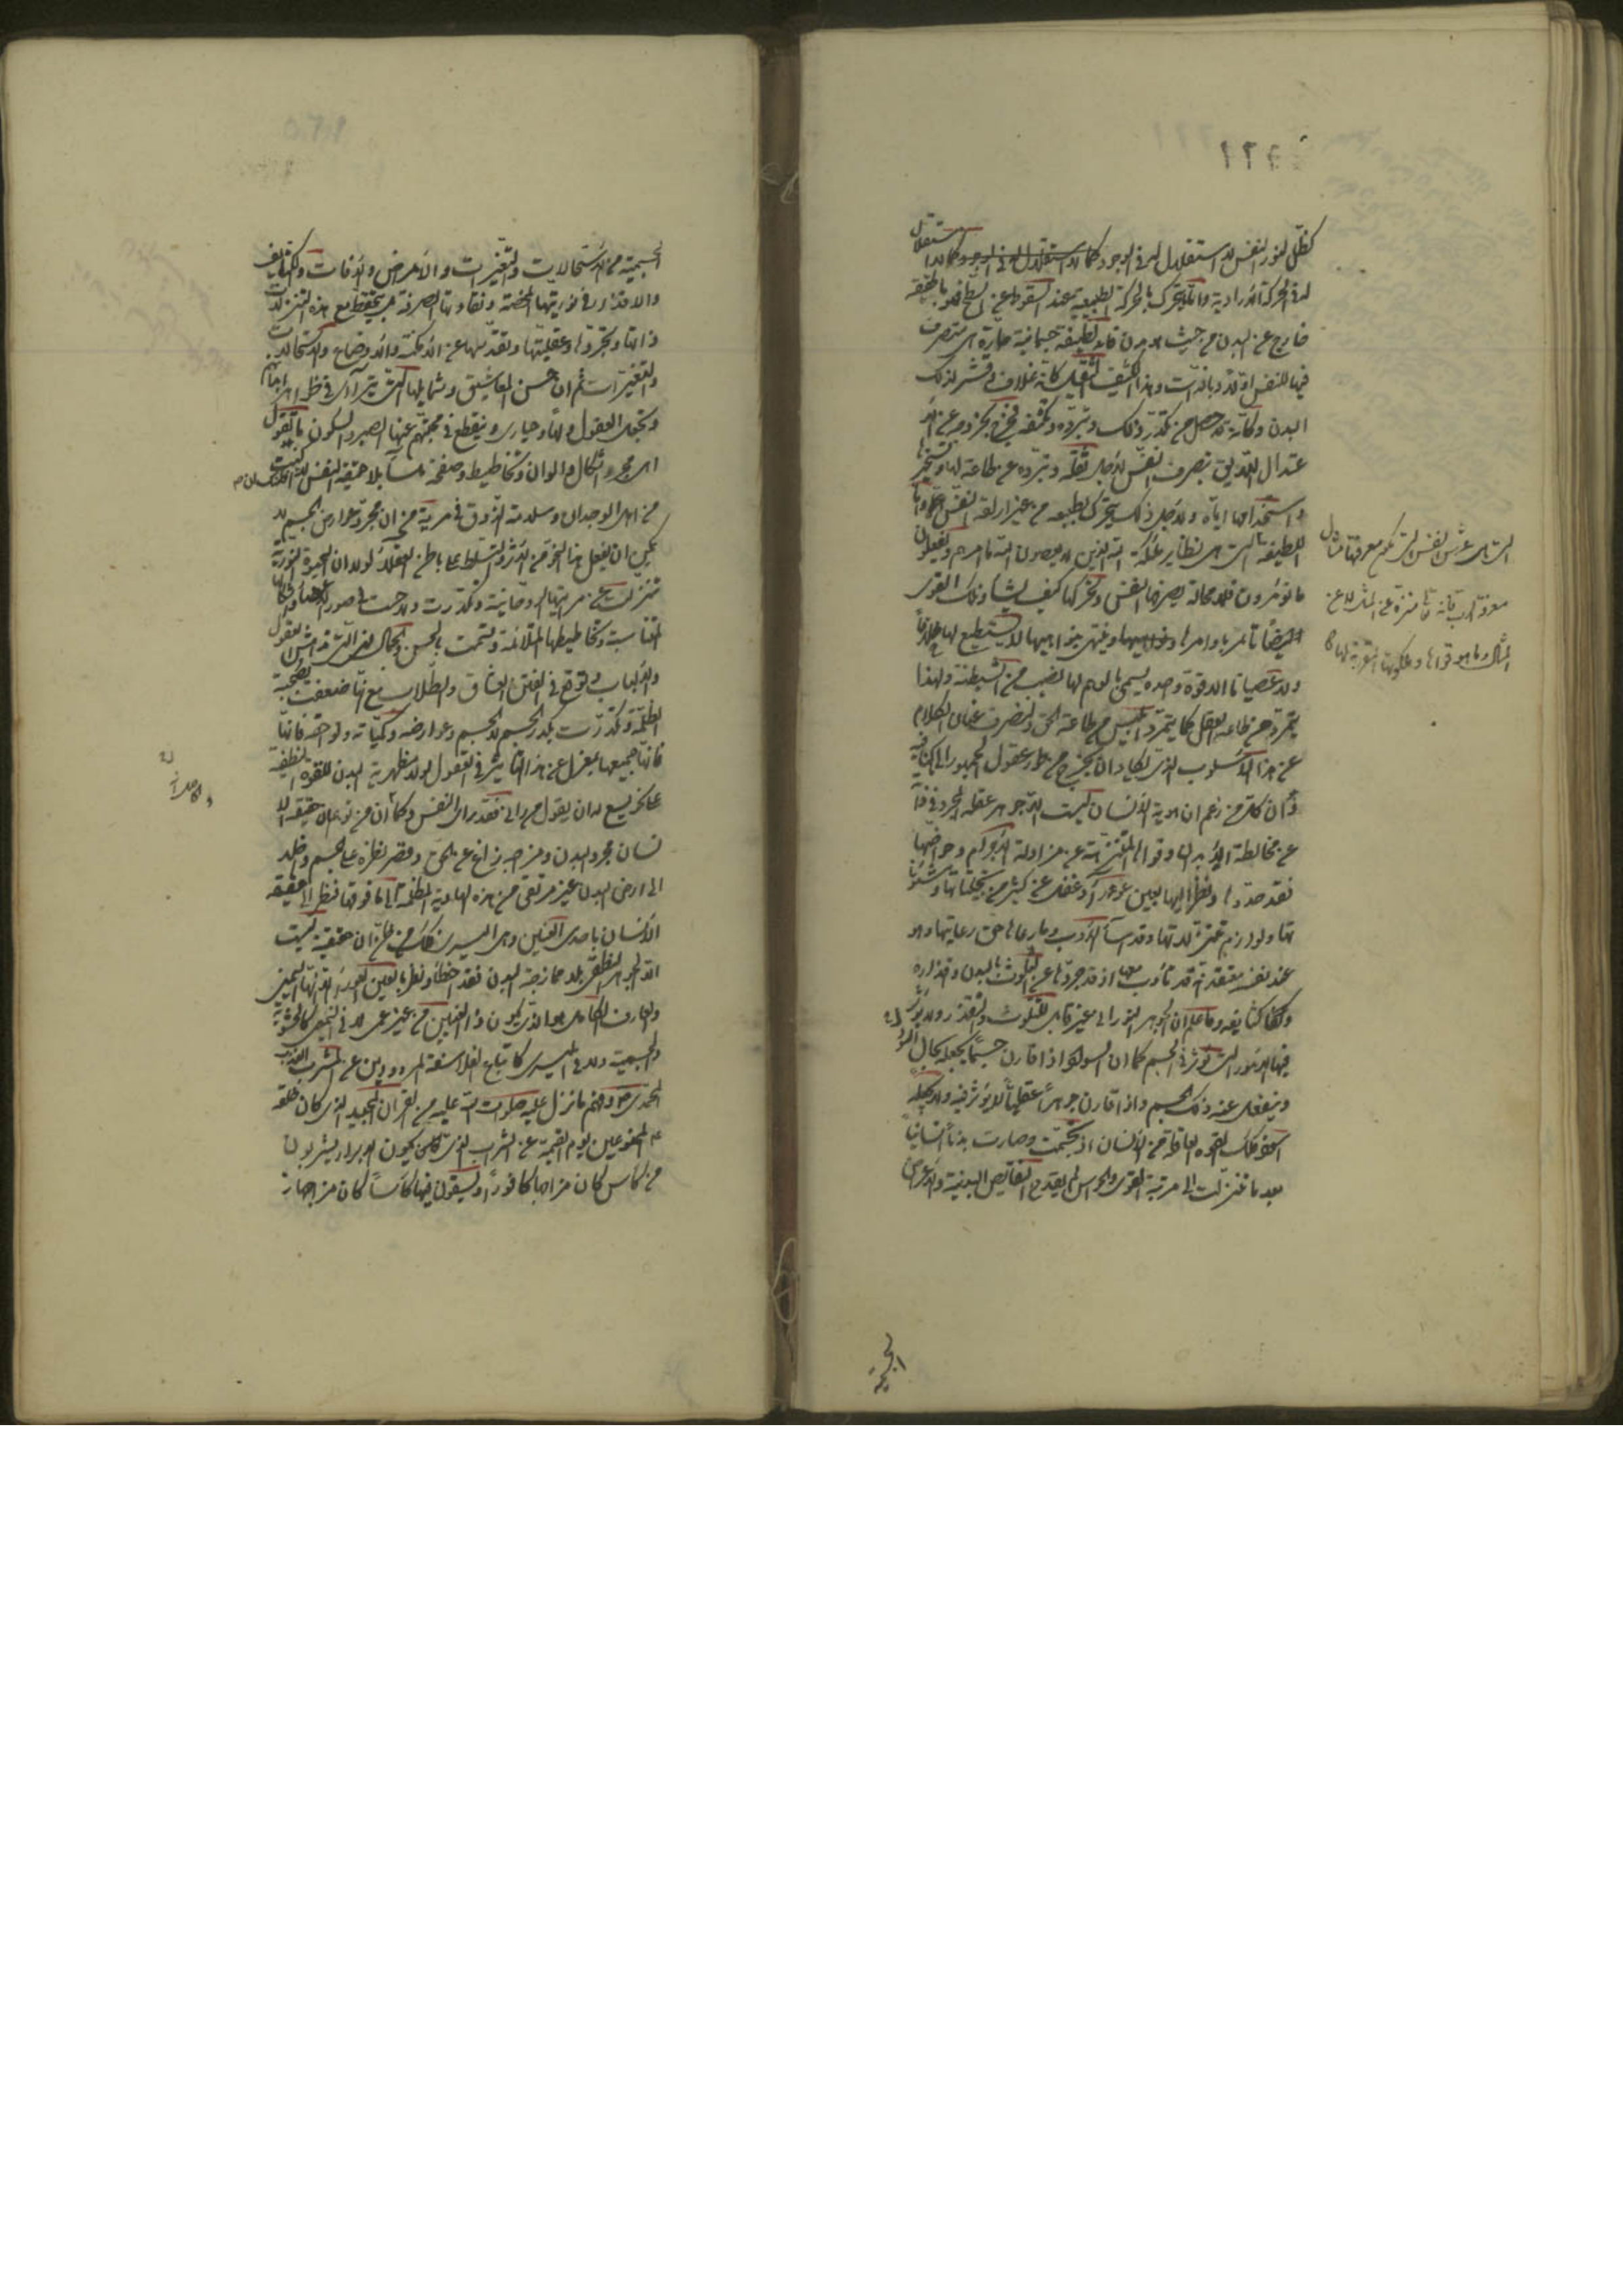 كظل لنور النفس لا استقلال له فى الوجود كما لا استقلال له فى الوجود كما لا استقلال
له فى الحركة الارادية وانما يتحرك بالحركة الطبيعية عند السقوط عن السطح فهو باطنه
خارج عن البدن من حيث هو بدن فان لطيفة جسمانية حارة هى متصرف
فيها للنفس اولا وبالذات وهذا الكثيف الثقيل كانه غلاف وقشر لذلك
البدن وكانه قد حصل من تكدر ذلك وتبرده وكثفه فخرج بخروجه عن الا
عتدال اللايق بتصرف النفس لاجل ثقله وتبرده عن طاعة لها وتسخيرها
واستخدامها اياه ولاجل ذلك يتحرك بطبيعه من غير ارادة النفس
اللطيفة التى هى نظاير ملائكة الله الذين لا يعصون الله ما امرهم ويفعلون
ما يؤمرون فلا محالة يصرفها النفس وتحركها كيف يشاء وذلك القوى
ايضا تاتمر باوامرها وينتهى بنواهيها لا يستطيع لها خلافا
ولا عصيانا الا قوة واحدة يسمى بالوهم لها نصيب من الشيطنة ولهذا
يتمرد عن طاعة العقل كما يتمرد ابليس من طاعة الحق ولنصرف عنان الكلام
عن هذا الاسلوب الذى يكاد ان يخرج من طور عقول الجمهور الى ما كنا فيه
وان كل من زعم ان هوية الانسان ليست الا جوهر عقله المجرد فى ذاته
عن مخالطة الابدان وقواها المتنزهة عن مزاولة الاجرام وحواضها
فقد حددها ونظر اليها بعين عوراء وغفل عن كثير من تجلياتها وشئونا
تها ولوازم تنزلاتها وقد اساء الادب وما رعاها حق رعايتها وهو
عند نفسه يعتقد انه قد تأدب معها اذ قد جردها عن التلوث بالبدن وقذاراته
وكثائفه وما علم ان الجوهر النورانى غير قابل للتلوث والتقذر ولا يؤثر
فيها الامور التى تؤثر فى الجسم كما ان السواد اذا قارن جسما يجعله بحال السواد
وينفعل عنه ذلك الجسم واذا قارن جوهرا عقليا لا يؤثر فيه ولا يجعله
اسود فكذلك القوة العاقلة من الانسان اذ تجسمت وصارت بدنا انسانيا
بعد ما تنزلت الى مرتبة القوى والحواس لم يقدح النقايص البدنية والاعراض
التى هى عرش النفس التى بحكم معرفتها مثال
معرفة الرب فانه تعالى منزه عن المثل لا عن
المثال وما هو قواها وملكوتها المقربة لها
الجسمية
الجسمية من الاستحالات والتغيرات والامراض والآفات والكثايف
والاقذار فى نوريتها المحضة ونقاوتها الصرفة بل يتحفظ مع هذه التنزلات
ذاتها وتجردها وعقليتها وتقدسها عن الامكنة والاوضاع والاستحالات
والتغيرات ثم ان حسن المعاشيق وشمايلها التى يترآاى فى ظواهر اجسامهم
وتجعل العقول والها وحيارى وينقطع فى محبتهم عنها الصبر والسكون ما تقول
اهى مجرد اشكال والوان وتخاطيط وصفحة ملساء بلا حقيقة النفس
من اهل الوجدان وسلامة الذوق فى مرية من ان مجرد عوارض الجسم لا
يمكن ان يفعل هذا النحو من الاثر والتسلط على باطن العقلاء لولا ان الحيوة النورية
تنزلت عن مرتبتها الروحانية وتكدرت ولاحت فى صور الاعضاء والاشكال
المتناسبة وتخاطيطها المتلائمة وتسمت بالحسن والجمال التى تدهش العقول
والالباب وتوقع فى الفتن العشاق والطلاب مع انها ضعفت بصحبة
الظلمة وتكدرت بكدر الجسم لا الجسم وعوارضه وكمياته ولواحقه فانها
فانها جميعها بمعزل عن هذا التاثير فى العقول لولا مظهرية البدن للقوة اللطيفة
على نحو يسع لها ان يقول من رآنى فقد رآى النفس وكما ان من توهم ان حقيقة الا
نسان مجرد البدن ومزاجه زاغ عن الحق وقصر نظره على الجسم واخلد
الى ارض البدن غير مرتقى من هذه الهاوية المظلمة الى ما فوقها فنظر الى حقيقة
الانسان باحدى العينين وهى اليسرى فكذلك من ظن ان حقيقته ليست
الا الجوهر النطقى بلا ممازجة البدن فقد اخطأ ونظر بالعين العوراء الا انها اليمنى
والعارف الكامل هو الذى يكون ذا العينين من غير عمى لا فى اليمنى كالحشوية
والجسمية ولا فى اليسرى كاتباع الفلاسفة المردودين عن المشرب العذب
المحمدى وفهم ما نزل عليه صلوات الله عليه من القران المجيد الذى كان خلقه
الممنوعين يوم القيمة عن الشراب الذى كان يكون الابرار يشربون
من كأس كان مزاجها كافورا ويسقون فيها كأسا كان مزاجها ز